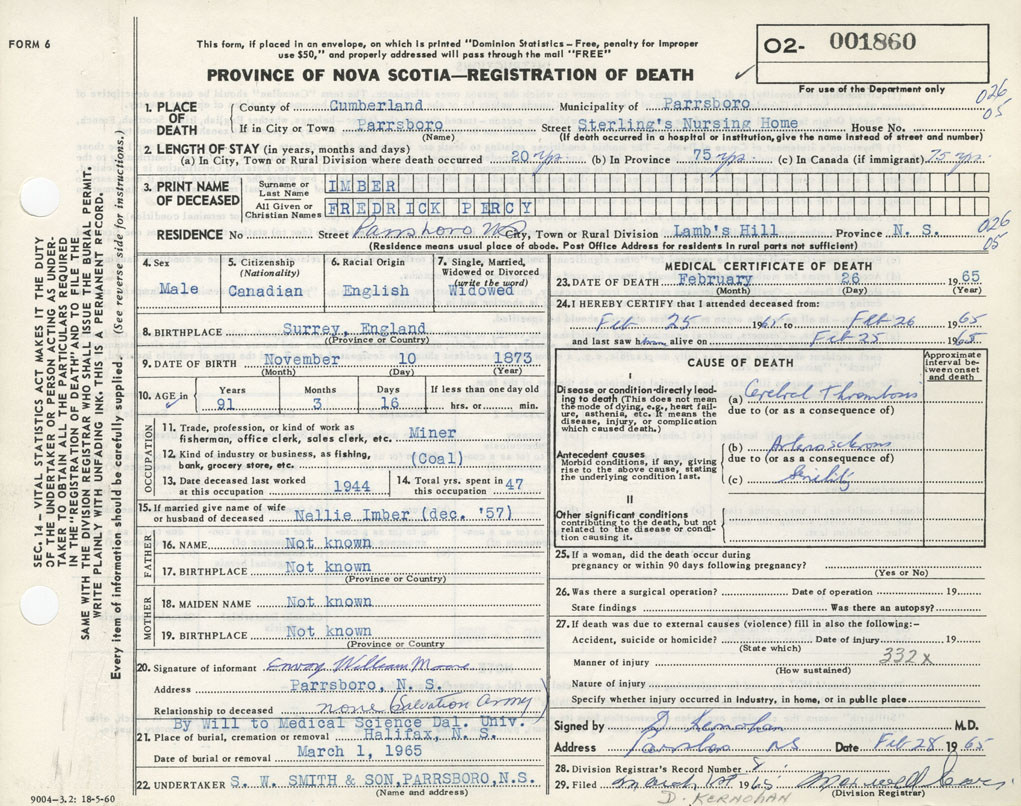 FORM 6
This form, if placed in an envelope, on which is printed "Dominion Statistics – Free, penalty for improper
use $50," and properly addressed will pass through the mail "FREE"
PROVINCE OF NOVA SCOTIA—REGISTRATION OF DEATH
O2- 001860
For use of the Department only
026
05
1. PLACE OF DEATH
County of Cumberland Municipality of Parrsboro
If in City or Town Parrsboro Street Sterling's Nursing Home House No.
(Name) (If death occurred in a hospital or institution, give the name instead of street and number)
2. LENGTH OF STAY (in years, months and days)
(a) In City, Town or Rural Division where death occurred 20 yrs. (b) In Province 75 yrs. (c) In Canada (if immigrant) 75 yrs.
3. PRINT NAME OF DECEASED
Surname or Last Name IMBER
All Given or Christian Names FREDRICK PERCY
RESIDENCE No. Street Parrsboro N.S. City, Town or Rural Division Lamb's Hill Province N. S.
026
05
(Residence means usual place of abode. Post Office Address for residents in rural parts not sufficient)
4. Sex
Male
5. Citizenship
(Nationality)
Canadian
6. Racial Origin
English
7. Single, Married,
Widowed or Divorced
(write the word)
Widowed
8. BIRTHPLACE Surrey, England
(Province or Country)
9. DATE OF BIRTH November 10 1873
(Month) (Day) (Year)
10. AGE in
Years Months Days If less than one day old
91 3 16 hrs. or min.
OCCUPATION
11. Trade, profession, or kind of work as
fisherman, office clerk, sales clerk, etc. Miner
12. Kind of industry or business, as fishing,
bank, grocery store, etc. (Coal)
13. Date deceased last worked
at this occupation 1944
14. Total yrs. spent in
this occupation 47
15. If married give name of wife
or husband of deceased Nellie Imber (dec. '57)
FATHER
16. NAME Not known
17. BIRTHPLACE Not known
(Province or Country)
MOTHER
18. MAIDEN NAME Not known
19. BIRTHPLACE Not known
(Province or Country
20. Signature of informant Envoy William Moore
Address Parrsboro, N. S.
Relationship to deceased none (Salvation Army)
By Will to Medical Science Dal. Univ.
21. Place of burial, cremation or removal Halifax, N. S.
Date of burial or removal March 1, 1965
22. UNDERTAKER S. W. SMITH & SON, PARRSBORO, N.S.
(Name and address)
MEDICAL CERTIFICATE OF DEATH
23. DATE OF DEATH February 26 1965
(Month) (Day) (Year)
24. I HEREBY CERTIFY that I attended deceased from:
Feb 25 1965 to Feb 26 1965
and last saw him alive on Feb 25 1965
CAUSE OF DEATH
Approximate
interval be-
tween onset
and death
I
Disease or condition directly lead-
ing to death (This does not mean
the mode of dying, e.g., heart fail-
ure, asthenia, etc. It means the
disease, injury, or complication
which caused death.)
(a) Cerebral Thrombosis
due to (or as a consequence of)
Antecedent causes
Morbid conditions, if any, giving
rise to the above cause, stating
the underlying condition last.
(b)
due to (or as a consequence of)
(c) Senility
II
Other significant conditions
contributing to the death, but not
related to the disease or condi-
tion causing it.
25. If a woman, did the death occur during
pregnancy or within 90 days following pregnancy?
(Yes or No)
26. Was there a surgical operation? Date of operation 19
State findings Was there an autopsy?
27. If death was due to external causes (violence) fill in also the following:–
Accident, suicide or homicide? Date of injury 19
(State which)
332x
Manner of injury
(How sustained)
Nature of injury
Specify whether injury occurred in industry, in home, or in public place
Signed by D Kernohan M.D.
Address Parrsboro NS Date Feb 28 1965
28. Division Registrar's Record Number
29. Filed March 1st 1965
(Division Registrar)
D. KERNOHAN
SEC. 14 – VITAL STATISTICS ACT MAKES IT THE DUTY
OF THE UNDERTAKER OR PERSON ACTING AS UNDER-
TAKER TO OBTAIN ALL THE PARTICULARS REQUIRED
IN THE "REGISTRATION OF DEATH" AND TO FILE THE
SAME WITH THE DIVISION REGISTRAR WHO SHALL ISSUE THE BURIAL PERMIT.
WRITE PLAINLY WITH UNFADING INK. THIS IS A PERMANENT RECORD.
Every item of information should be carefully supplied. (See reverse side for instructions.)
9004-3.2: 18-5-60